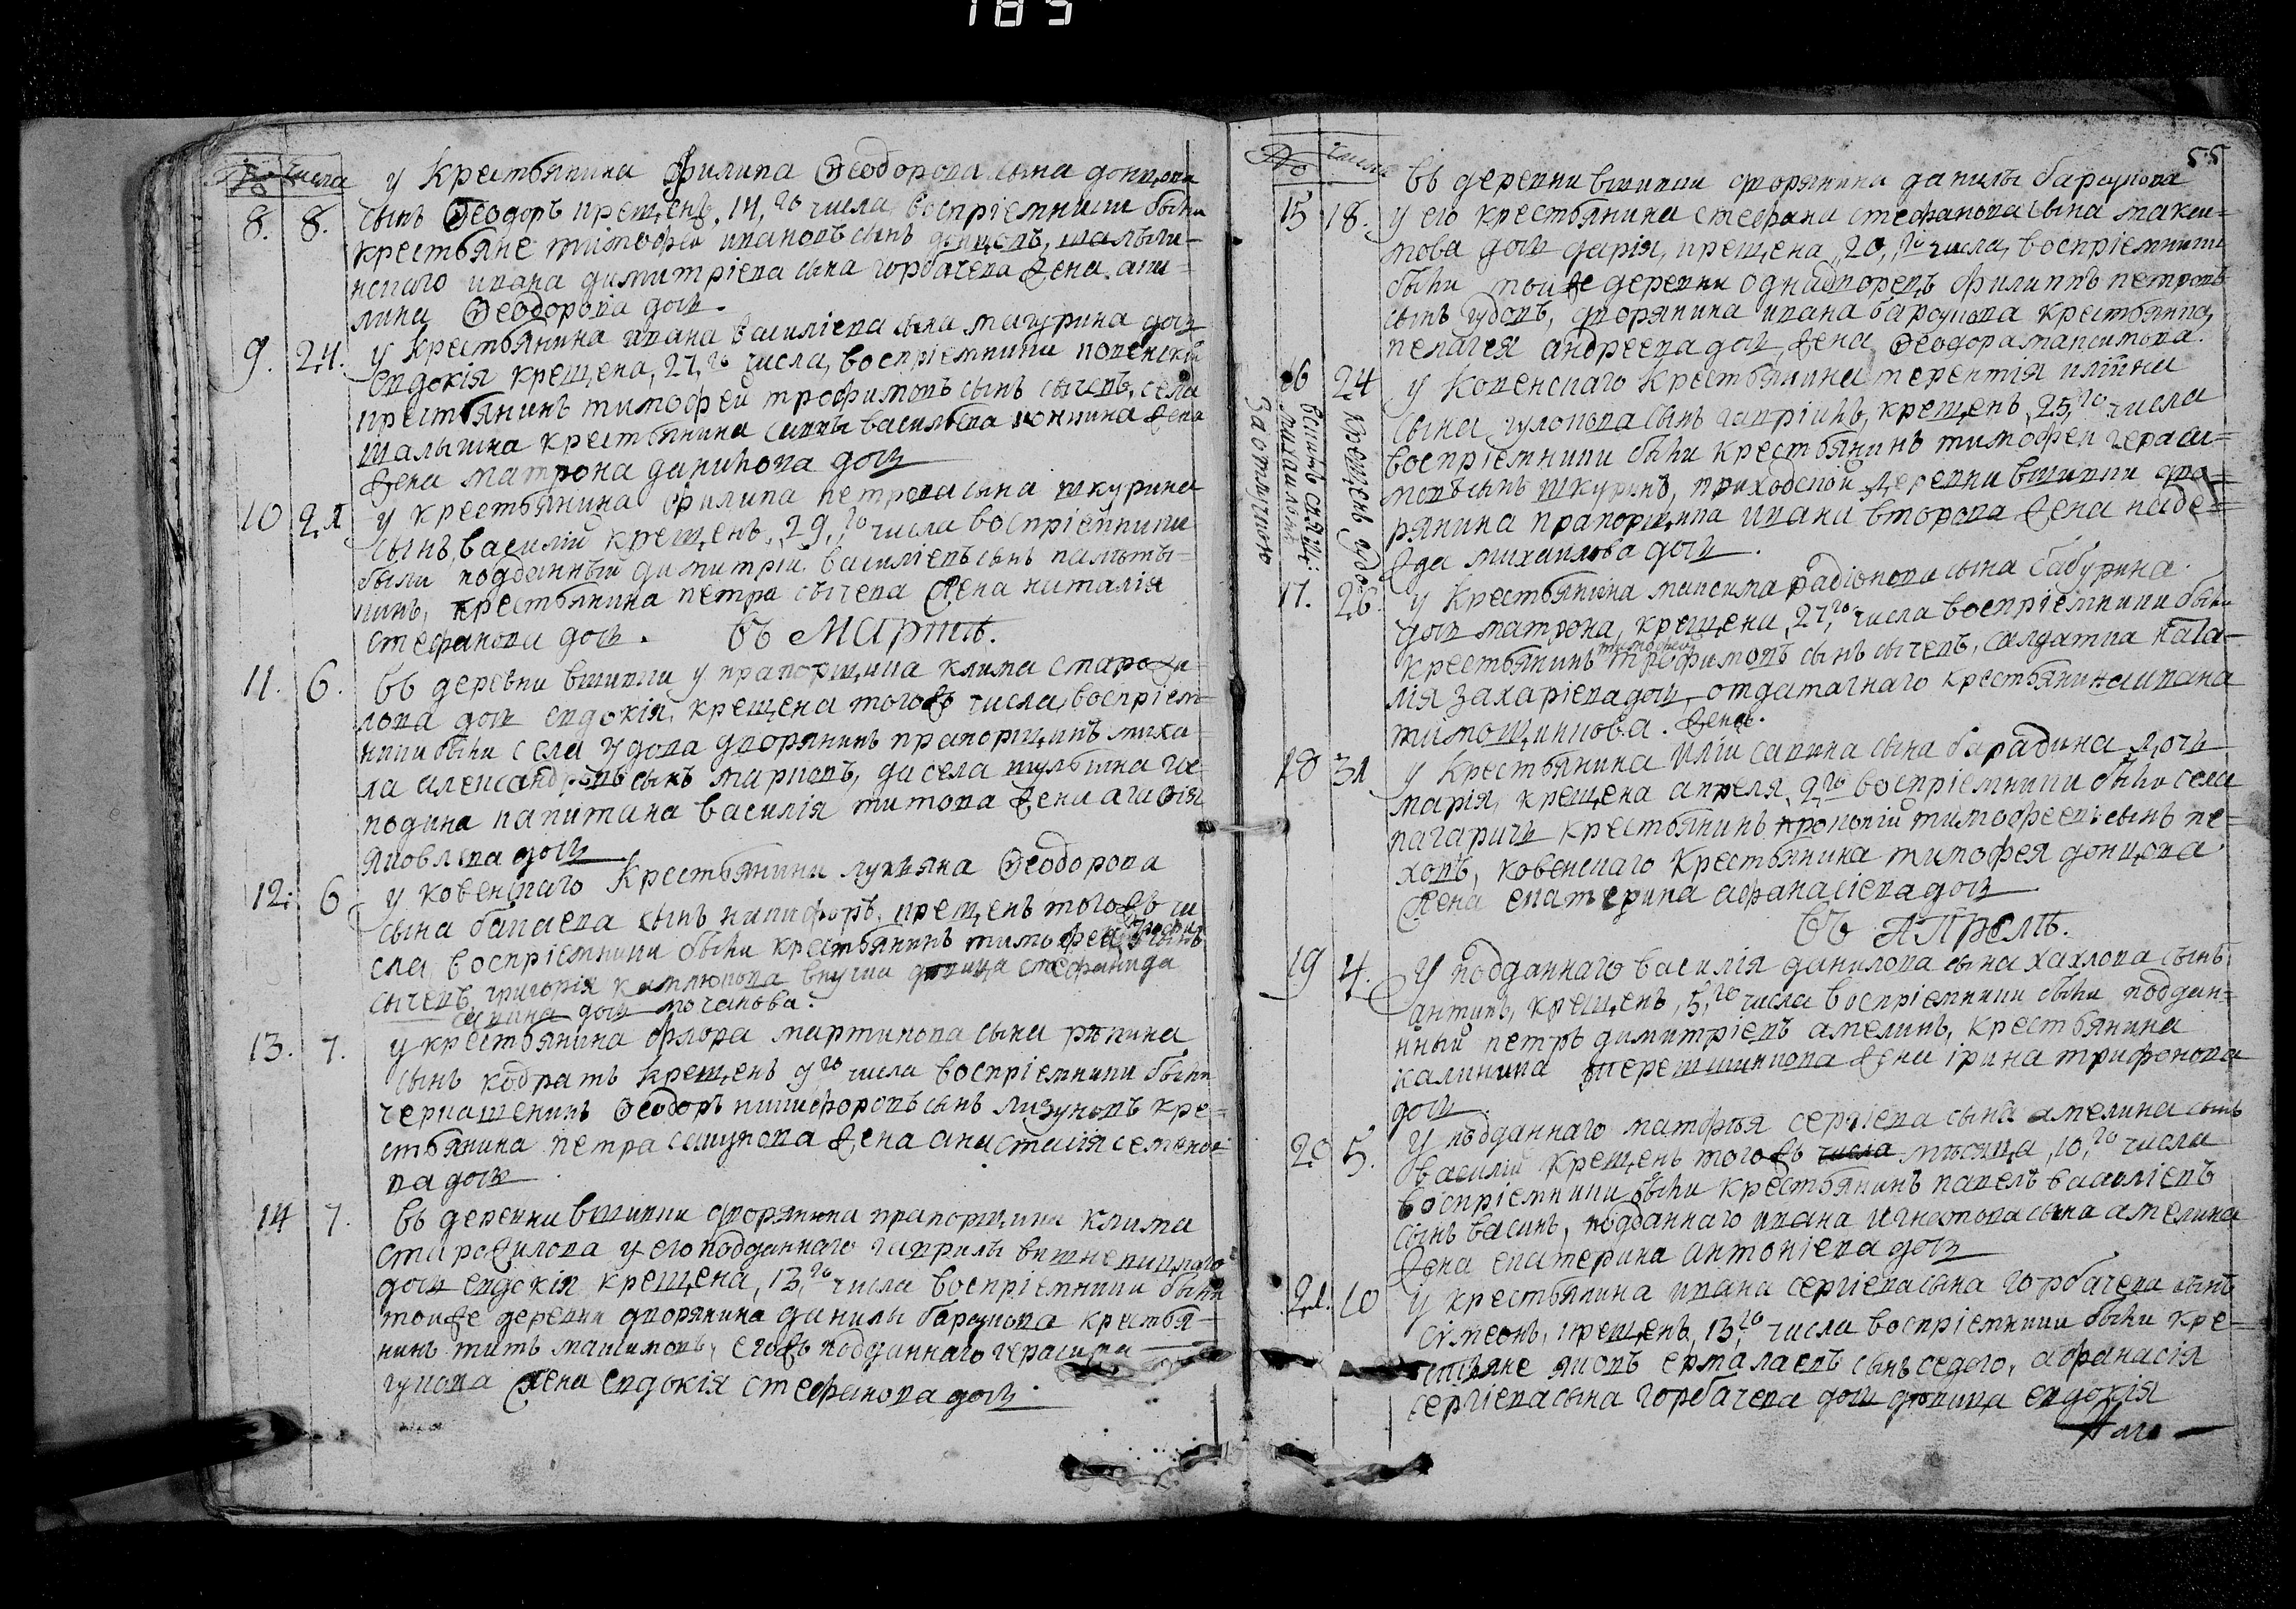 185
№ числа
у крестьянина Филипа Ѳеодорова сына донцова
8. 8. сынъ Ѳеодоръ крещенъ, 14,го числа воспріемники были
крестьяне тимофей ивановъ сынъ донцовъ, шалыги-
нскаго ивана димитріева сына горбачева жена аки-
лина Ѳеодорова дочь.
9. 24. у крестьянина ивана василіева сына мачурина дочь
евдокія крещена, 27,го числа, воспріемники ковенскій
крестьянинъ тимофей трофимовъ сынъ сычевъ, села
шалыгина крестьянина саввы васильева жена
жена матрона данилова дочь
10 21 у крестьянина Филипа петрова сына шкурина
сынъ василій крещенъ, 29,го числа воспріемники
были подданный димитрій василіевъ сынъ
крестьянина петра сычева жена наталія
стефанова дочь. въ Мартѣ.
11. 6. въ деревни вшивки у прапорщика клима старожи-
лова дочь евдокія, крещена тогожъ числа, воспріем-
ники были села удова дворянинъ прапорщикъ миха-
ла александровъ сынъ марковъ, да села шулыгина гос-
подина капитана василія титова жена агафія
яковлева дочь
12. 6 у ковенскаго крестьянина лукьяна Ѳеодорова
сына бакаева сынъ никифоръ, крещенъ тогожъ чи
сла, воспріемники были крестьянинъ тимофей трофимовъ сынъ
сычевъ, григорія камлюкова внучка дѣвица стефанида
савина дочь мочанова.
13. 7. у крестьянина флора мартинова сына рѣпина
сынъ кодратъ крещенъ 9го числа воспріемники были
черкашенинъ Ѳеодоръ никифоровъ сынъ лизуновъ кре-
стьянина петра сашукова жена анастасія семено-
ва дочь
14 7. въ деревни вшивки дворянина прапорщика клима
старожилова у его подданнаго гаврилы вишневицкаго
дочь евдокія крещена, 13,го числа воспріемники были
тоижъ деревни дворянина данилы барсукова крестья-
нинъ титъ максимовъ, егожъ подданнаго герасима
гукова жена евдокія стефанова дочь.
№ числа
55
въ деревни вшивки дворянина данилы барсукова
15 18. у его крестьянина стефана стефанова сына макси-
мова дочь дарія, крещена, 20,го числа, воспріемники
были тоиже деревни однодворецъ филиппъ петровъ
сынъ удовъ, дворянина ивана барсукова крестьянина
пелагея андреева дочь, жена Ѳеодора максимова.
16 24 у ковенскаго крестьянина терентія илійна
сына гулокова сынъ гавріилъ, крещенъ, 25,го числа
воспріемники были крестьянинъ тимофей гераси-
мовъ сынъ шкуринъ, приходской деревни вшивки дво-
рянина прапорщика ивана второва жена наде-
жда михаилова дочь.
крещенъ удо
вскимъ свящ:
михаиломъ
17. 26 у крестьянина максима радіонова сына бабурина.
дочь матрона, крещена, 27,го числа воспріемники были
крестьянинъ тимофей трофимовъ сынъ сычевъ, салдатка ната-
лія захаріева дочь, отдаточнаго крестьянина ивана
тимощинкова. жена.
18 31 у крестьянина иліи савина сына барадина дочь
марія, крещена апреля, 2го воспріемники были села
пагаричь крестьянинъ прокопій тимофеевъ сынъ пе-
ховъ, ковенскаго крестьянина тимофея донцова
жена екатерина афанасіева дочь
въ Апрелѣ.
19 4. у подданнаго василія данилова сына хахлова сынъ
антипъ, крещенъ, 5,го числа воспріемники были поддан-
ный петръ димитріевъ амелинъ, крестьянина
калиника жена ірина трифонова
дочь
20 5. у подданнаго матфѣя сергіева сына амелина сынъ
василій крещенъ тогожъ числа мѣсяца, 10,го числа
воспріемники были крестьянинъ павелъ василіевъ
сынъ васинъ, подданнаго ивана игнатова сына амелина
жена екатерина антоніева дочь
21. 10 у крестьянина ивана сергіева сына горбачева сынъ
сімеонъ, крещенъ, 13,го числа воспріемники были кре-
стьяне яковъ ермалаевъ сынъ седого, афанасія
сергіева сына горбачева дочь дѣвица евдокія